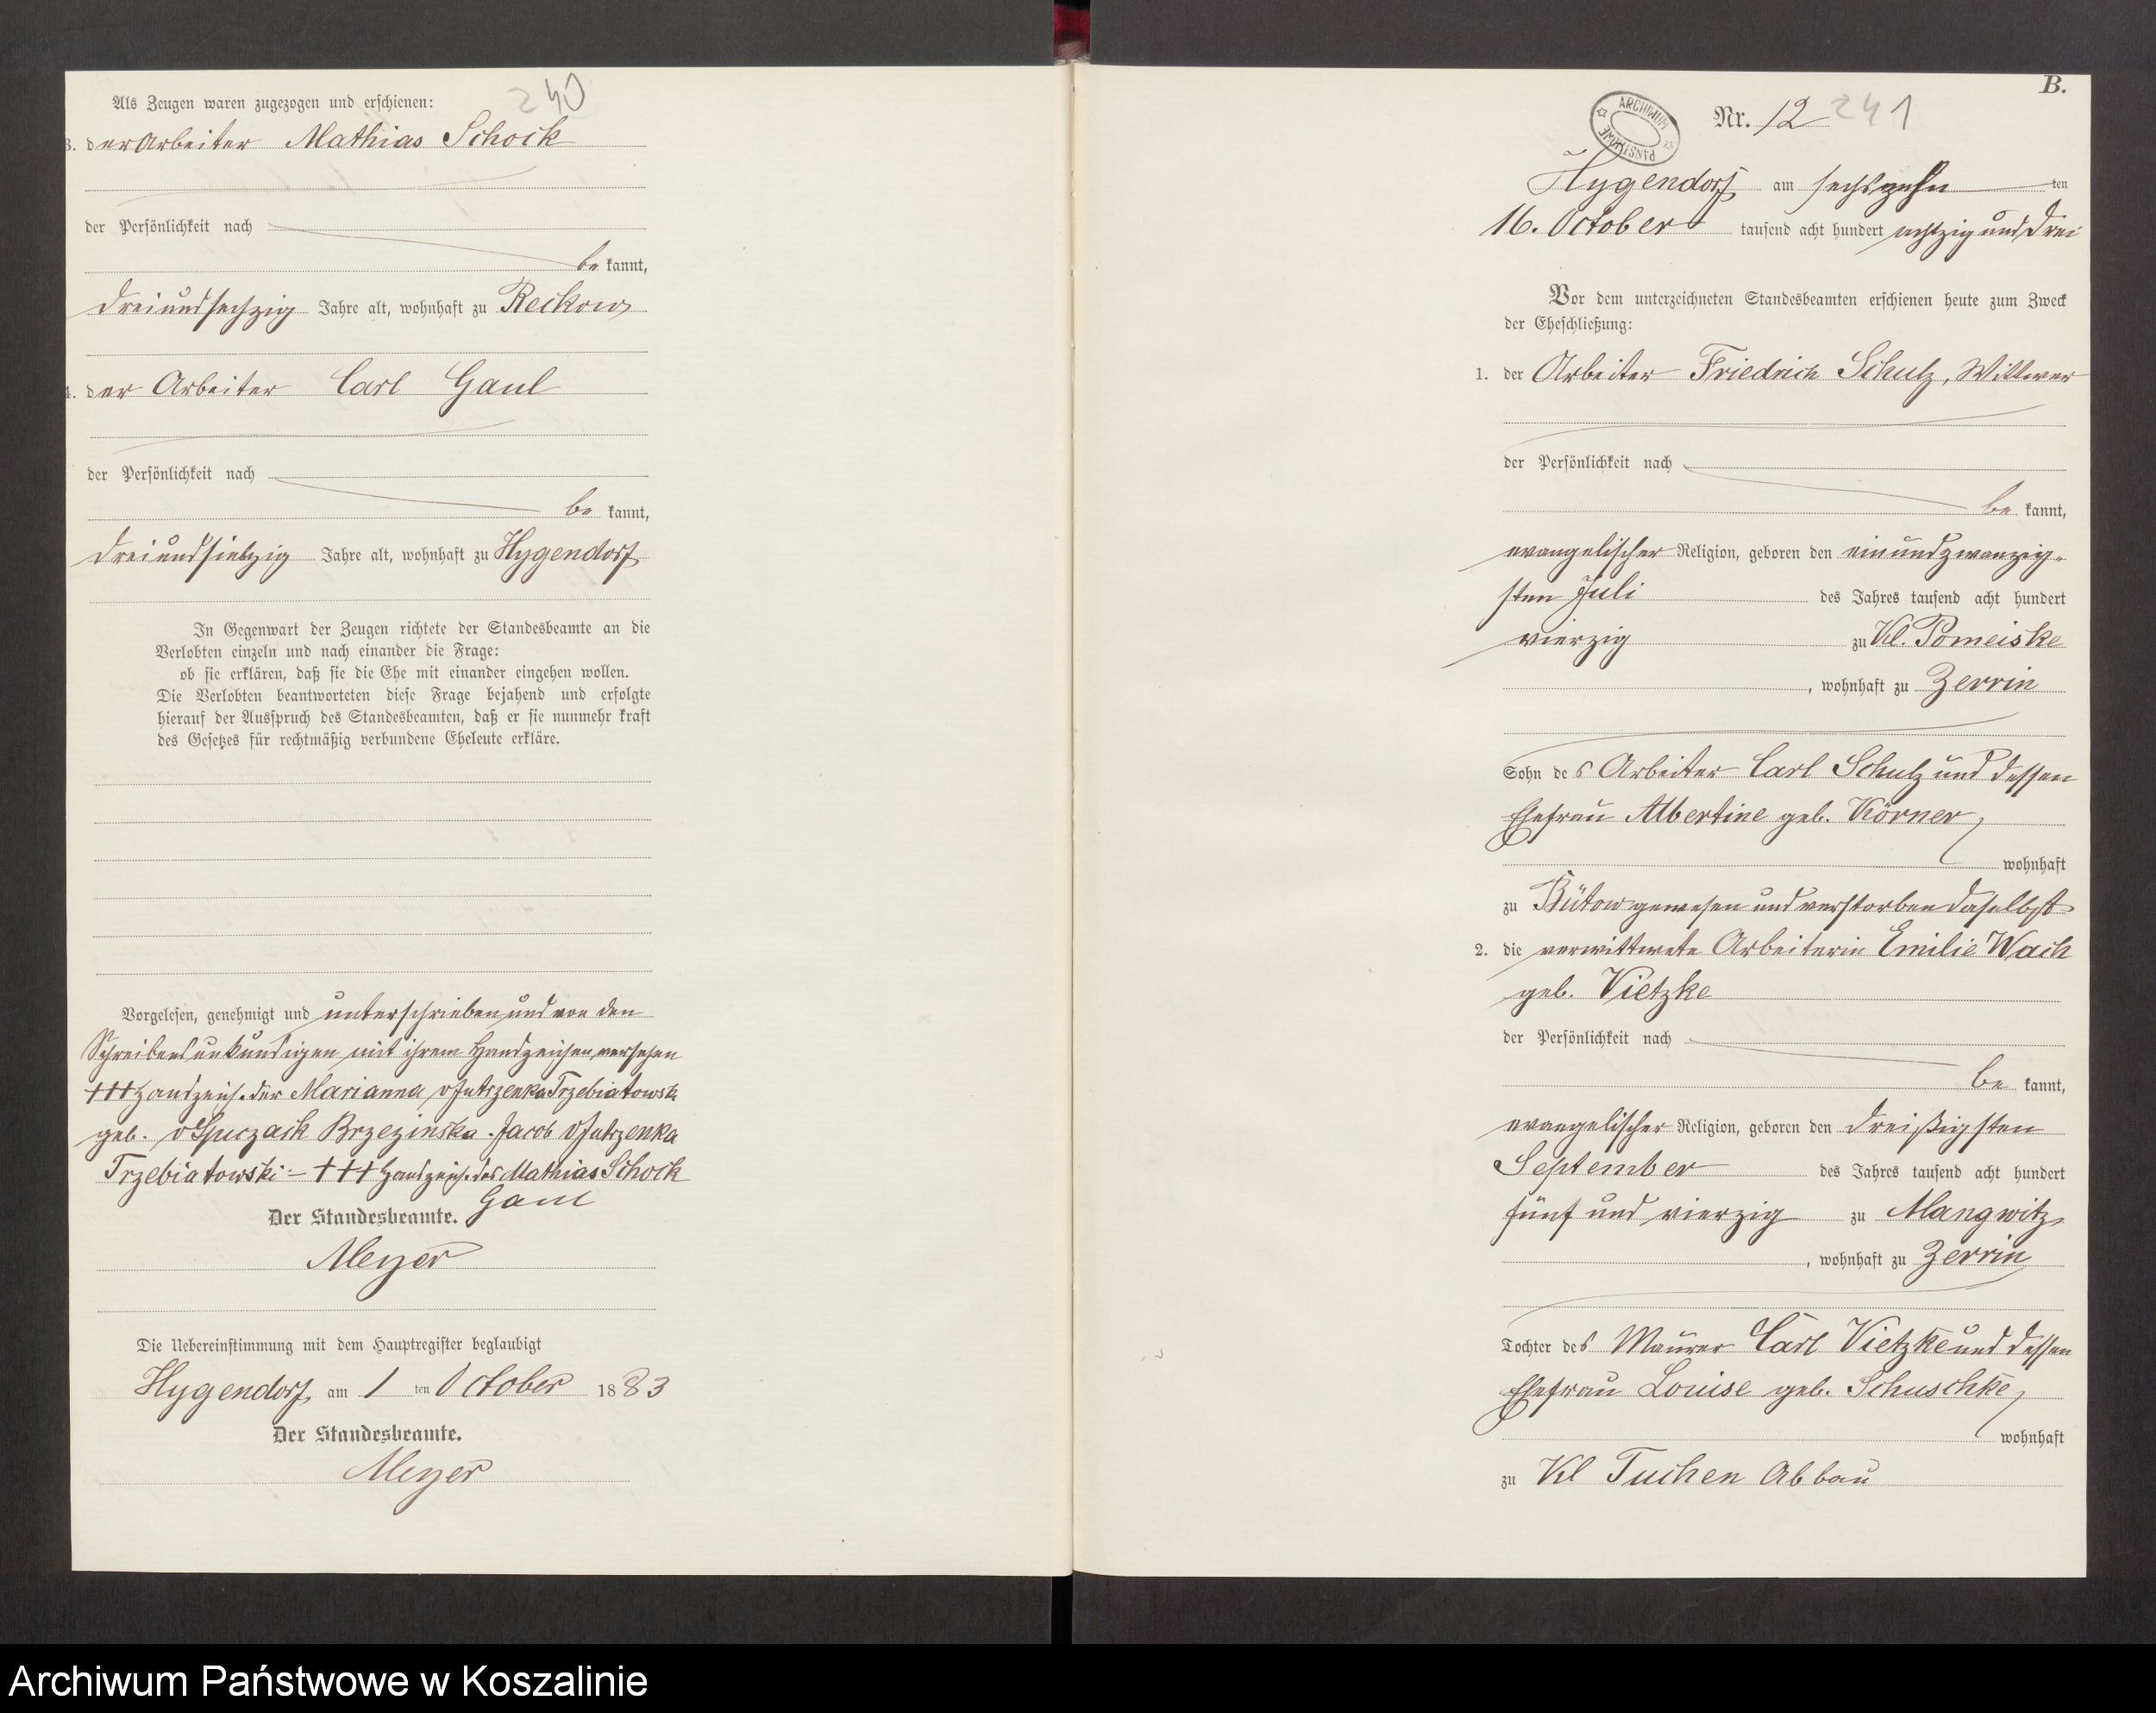 240
Als Zeugen waren zugezogen und erschienen:
3. der Arbeiter Mathias Schock
der Persönlichkeit nach
be kannt,
dreiundsechzig Jahre alt, wohnhaft zu Reckow
4. der Arbeiter Carl Gaul
der Persönlichkeit nach
be kannt,
dreiundsiebzig Jahre alt, wohnhaft zu Hygendorf
In Gegenwart der Zeugen richtete der Standesbeamte an die
Verlobten einzeln und nach einander die Frage:
ob sie erklären, daß sie die Ehe mit einander eingehen wollen.
Die Verlobten beantworteten diese Frage bejahend und erfolgte
hierauf der Ausspruch des Standesbeamten, daß er sie nunmehr kraft
des Gesetzes für rechtmäßig verbundene Eheleute erkläre.
Vorgelesen, genehmigt und unterschrieben und von den
Schreibensunkundigen mit ihrem Handzeichen versehen
+++ Handzeich. der Marianna v Jutrzenka Trzebiatowska
geb. v Brzezinska. Jacob v Jutrzenka
Trzebiatowski – +++ Handzeich. des Mathias Schock
Gaul
Der Standesbeamte.
Meyer
Die Uebereinstimmung mit dem Hauptregister beglaubigt
Hygendorf am 1 ten October 1883
Der Standesbeamte.
Meyer
B.
ARCHIWUM PAŃSTWOWE
Nr. 12 241
Hygendorf am sechszehn ten
16. October tausend acht hundert achtzig und drei
Vor dem unterzeichneten Standesbeamten erschienen heute zum Zweck
der Eheschließung:
1. der Arbeiter Friedrich Schulz, Wittwer
der Persönlichkeit nach
be kannt,
evangelischer Religion, geboren den einundzwanzig-
sten Juli des Jahres tausend acht hundert
vierzig zu Kl. Pomeiske
, wohnhaft zu Zerrin
Sohn des Arbeiter Carl Schulz und dessen
Ehefrau Albertine geb. Körner,
wohnhaft
zu Bütow gewesen und verstorben daselbst
2. die verwittwete Arbeiterin Emilie Wach
geb. Vietzke
der Persönlichkeit nach
be kannt,
evangelischer Religion, geboren den dreißigsten
September des Jahres tausend acht hundert
fünf und vierzig zu Mangwitz
, wohnhaft zu Zerrin
Tochter des Maurer Carl Vietzke und dessen
Ehefrau Louise geb. Schuschke,
wohnhaft
zu Kl Tuchen Abbau
Archiwum Państwowe w Koszalinie